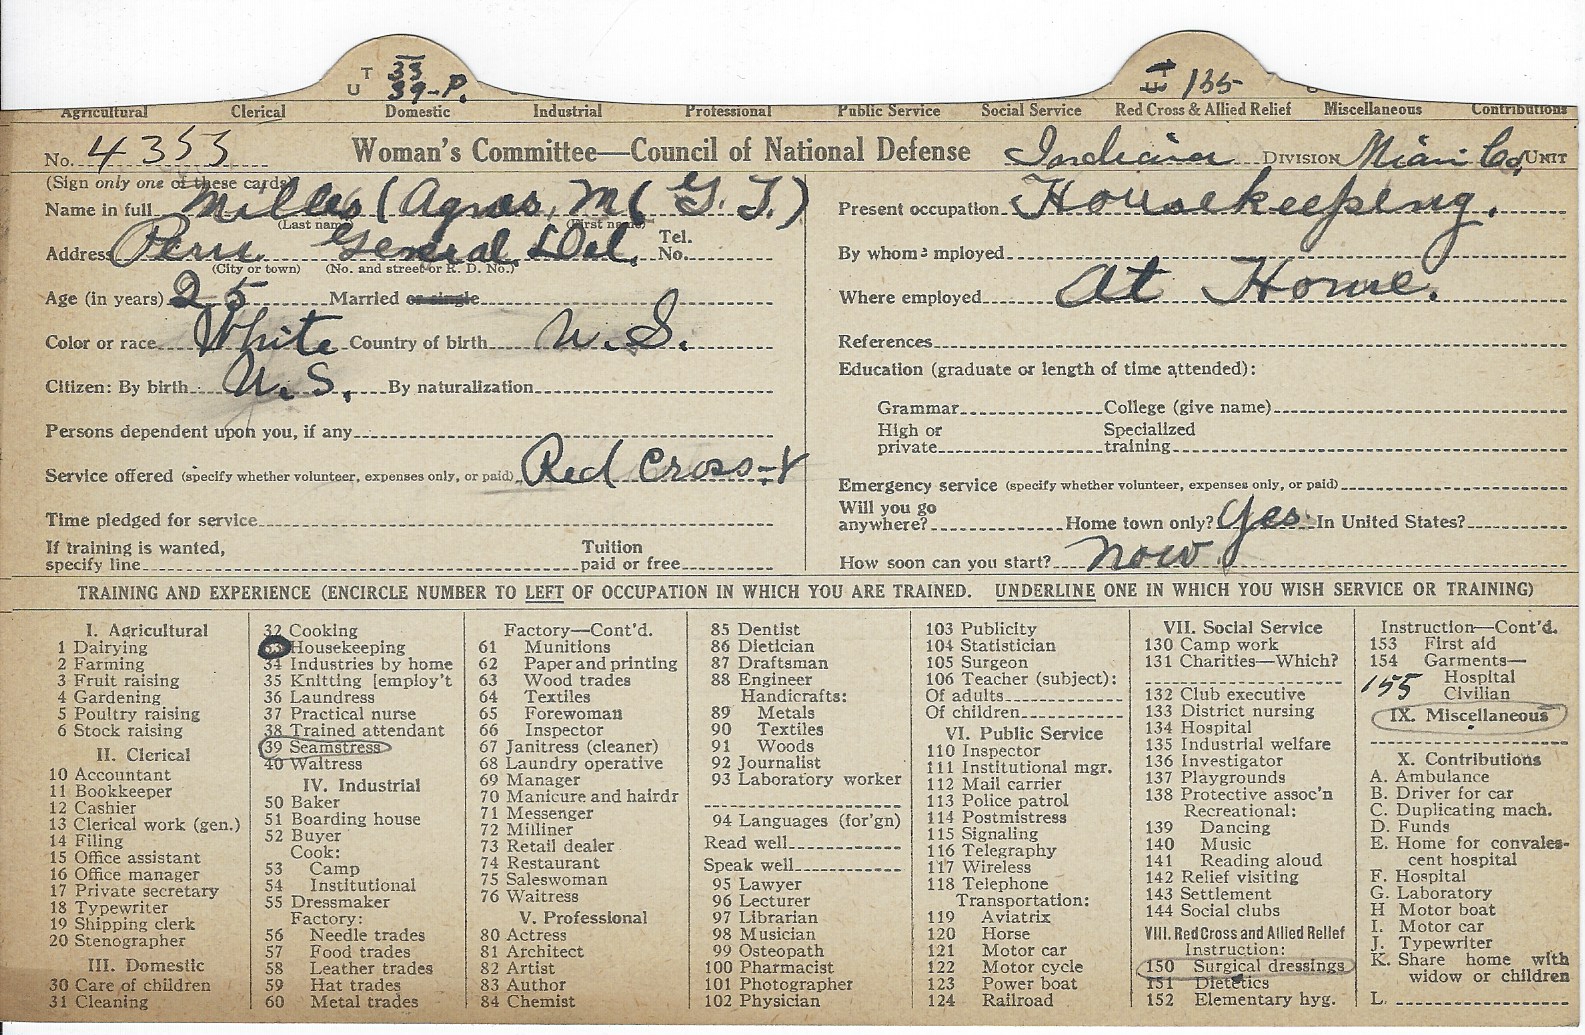 T 33
U 39-P.
135
Agricultural Clerical Domestic Industrial Professional Public Service Social Service Red Cross & Allied Relief Miscellaneous Contributions
No. 4353 Woman's Committee—Council of National Defense Indiana DIVISION Miami Co. UNIT
(Sign only one of these cards)
Name in full Miller (Agnes, M( G. T.)
(Last name) (First name)
Address Peru General Del. Tel. No.
(City or town) (No. and street or R. D. No.)
Age (in years) 25 Married or single
Color or race White Country of birth U. S.
Citizen: By birth U. S. By naturalization
Persons dependent upon you, if any
Service offered (specify whether volunteer, expenses only, or paid) Red Cross
Time pledged for service
If training is wanted, specify line Tuition paid or free
Present occupation Housekeeping.
By whom mployed
Where employed At Home.
References
Education (graduate or length of time attended):
Grammar College (give name)
High or private Specialized training
Emergency service (specify whether volunteer, expenses only, or paid)
Will you go anywhere? Home town only? Yes. In United States?
How soon can you start? now.
TRAINING AND EXPERIENCE (ENCIRCLE NUMBER TO LEFT OF OCCUPATION IN WHICH YOU ARE TRAINED. UNDERLINE ONE IN WHICH YOU WISH SERVICE OR TRAINING)
I. Agricultural
1 Dairying
2 Farming
3 Fruit raising
4 Gardening
5 Poultry raising
6 Stock raising
II. Clerical
10 Accountant
11 Bookkeeper
12 Cashier
13 Clerical work (gen.)
14 Filing
15 Office assistant
16 Office manager
17 Private secretary
18 Typewriter
19 Shipping clerk
20 Stenographer
III. Domestic
30 Care of children
31 Cleaning
32 Cooking
33 Housekeeping
34 Industries by home
35 Knitting [employ't
36 Laundress
37 Practical nurse
38 Trained attendant
39 Seamstress
40 Waitress
IV. Industrial
50 Baker
51 Boarding house
52 Buyer
Cook:
53 Camp
54 Institutional
55 Dressmaker
Factory:
56 Needle trades
57 Food trades
58 Leather trades
59 Hat trades
60 Metal trades
Factory—Cont'd.
61 Munitions
62 Paper and printing
63 Wood trades
64 Textiles
65 Forewoman
66 Inspector
67 Janitress (cleaner)
68 Laundry operative
69 Manager
70 Manicure and hairdr
71 Messenger
72 Milliner
73 Retail dealer
74 Restaurant
75 Saleswoman
76 Waitress
V. Professional
80 Actress
81 Architect
82 Artist
83 Author
84 Chemist
85 Dentist
86 Dietician
87 Draftsman
88 Engineer
Handicrafts:
89 Metals
90 Textiles
91 Woods
92 Journalist
93 Laboratory worker
94 Languages (for'gn)
Read well
Speak well
95 Lawyer
96 Lecturer
97 Librarian
98 Musician
99 Osteopath
100 Pharmacist
101 Photographer
102 Physician
103 Publicity
104 Statistician
105 Surgeon
106 Teacher (subject):
Of adults
Of children
VI. Public Service
110 Inspector
111 Institutional mgr.
112 Mail carrier
113 Police patrol
114 Postmistress
115 Signaling
116 Telegraphy
117 Wireless
118 Telephone
Transportation:
119 Aviatrix
120 Horse
121 Motor car
122 Motor cycle
123 Power boat
124 Railroad
VII. Social Service
130 Camp work
131 Charities—Which?
132 Club executive
133 District nursing
134 Hospital
135 Industrial welfare
136 Investigator
137 Playgrounds
138 Protective assoc'n
Recreational:
139 Dancing
140 Music
141 Reading aloud
142 Relief visiting
143 Settlement
144 Social clubs
VIII. Red Cross and Allied Relief
Instruction:
150 Surgical dressings
151 Dietetics
152 Elementary hyg.
Instruction—Cont'd.
153 First aid
154 Garments—
Hospital
155 Civilian
IX. Miscellaneous
X. Contributions
A. Ambulance
B. Driver for car
C. Duplicating mach.
D. Funds
E. Home for convales-
cent hospital
F. Hospital
G. Laboratory
H Motor boat
I. Motor car
J. Typewriter
K. Share home with
widow or children
L.